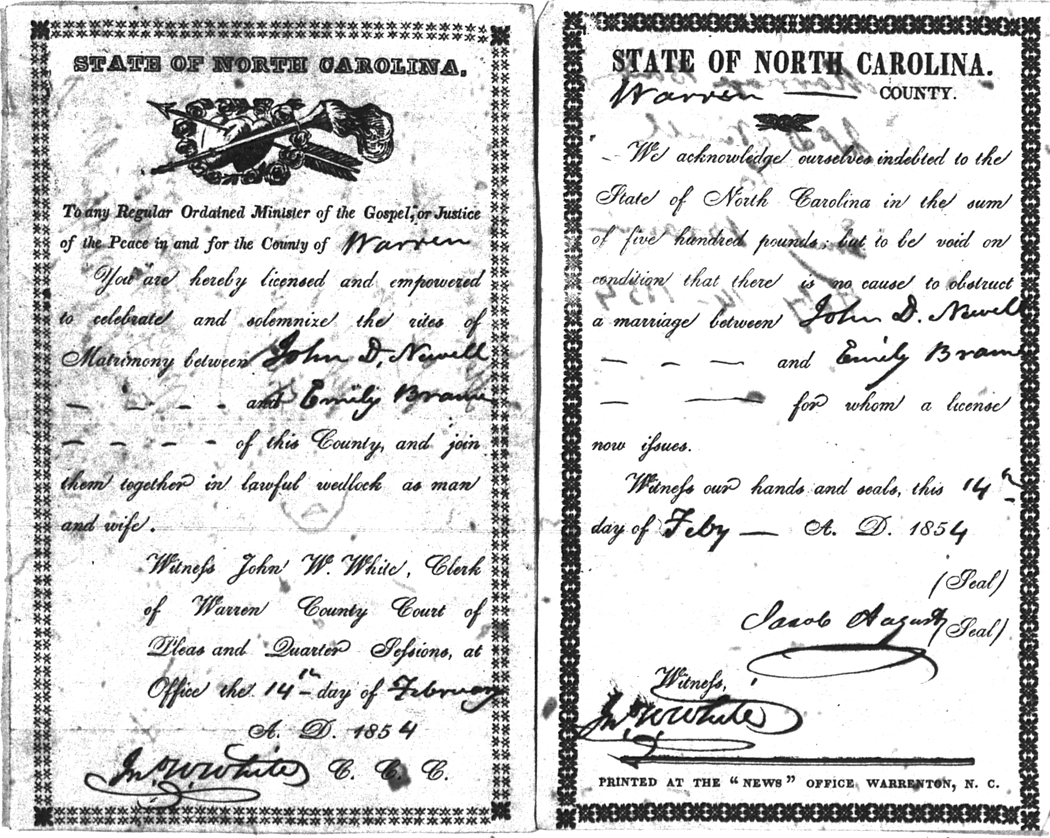 STATE OF NORTH CAROLINA.
To any Regular Ordained Minister of the Gospel, or Justice
of the Peace in and for the County of Warren
You are hereby licensed and empowered
to celebrate and solemnize the rites of
Matrimony between John D. Newell
— — — — and Emily Brame
— — — — of this County, and join
them together in lawful wedlock as man
and wife.
Witness John W. White, Clerk
of Warren County Court of
Pleas and Quarter Sessions, at
Office the 14th day of February
A. D. 1854
Jno W White C. C. C.
STATE OF NORTH CAROLINA.
Warren — COUNTY.
We acknowledge ourselves indebted to the
State of North Carolina in the sum
of five hundred pounds; but to be void on
condition that there is no cause to obstruct
a marriage between John D. Newell
— — — and Emily Brame
— — for whom a license
now issues.
Witness our hands and seals, this 14th
day of Feby — A. D. 1854
(Seal)
Jacob (Seal)
Witness,
Jno W White
PRINTED AT THE "NEWS" OFFICE WARRENTON, N. C.